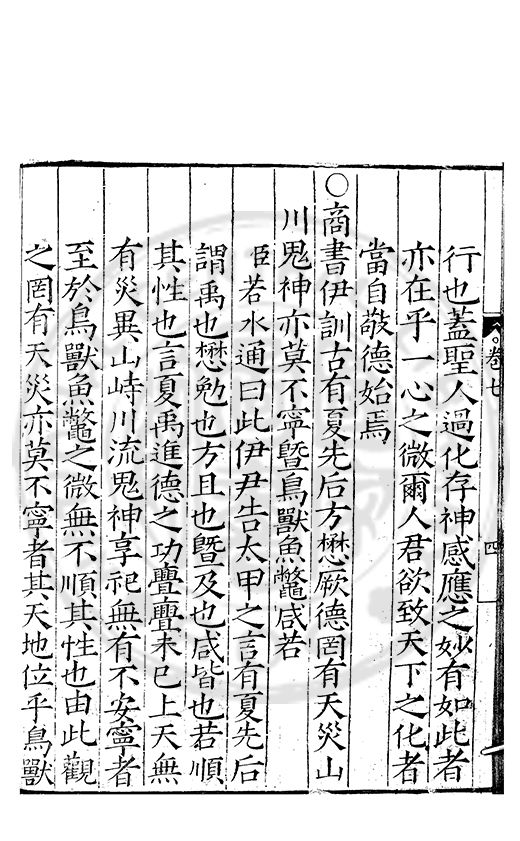 卷七
四
行也蓋聖人過化存神感應之妙有如此者
亦在乎一心之微爾人君欲致天下之化者
當自敬德始焉
○商書伊訓古有夏先后方懋厥德罔有天災山
川鬼神亦莫不寧暨鳥獸魚鱉咸若
臣若水通曰此伊尹告太甲之言有夏先后
謂禹也懋勉也方且也暨及也咸皆也若順
其性也言夏禹進德之功亹亹未已上天無
有災異山峙川流鬼神享祀無有不安寧者
至於鳥獸魚鱉之微無不順其性也由此觀
之罔有天災亦莫不寧者其天地位乎鳥獸